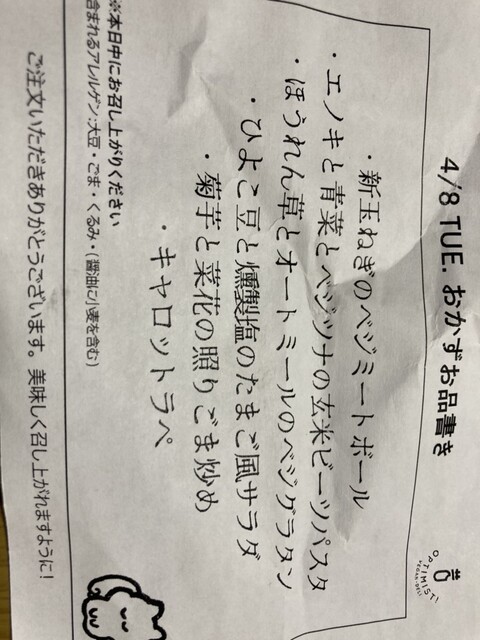 4/8 TUE. おかずお品書き
OPTIMIST!
VEGAN-DELI
・新玉ねぎのベジミートボール
・エノキと青菜とベジツナの玄米ビーツパスタ
・ほうれん草とオートミールのベジグラタン
・ひよこ豆と燻製塩のたまご風サラダ
・菊芋と菜花の照りごま炒め
・キャロットラペ
※本日中にお召し上がりください
含まれるアレルゲン:大豆・ごま・くるみ・(醤油に小麦を含む)
ご注文いただきありがとうございます。美味しく召し上がれますように!